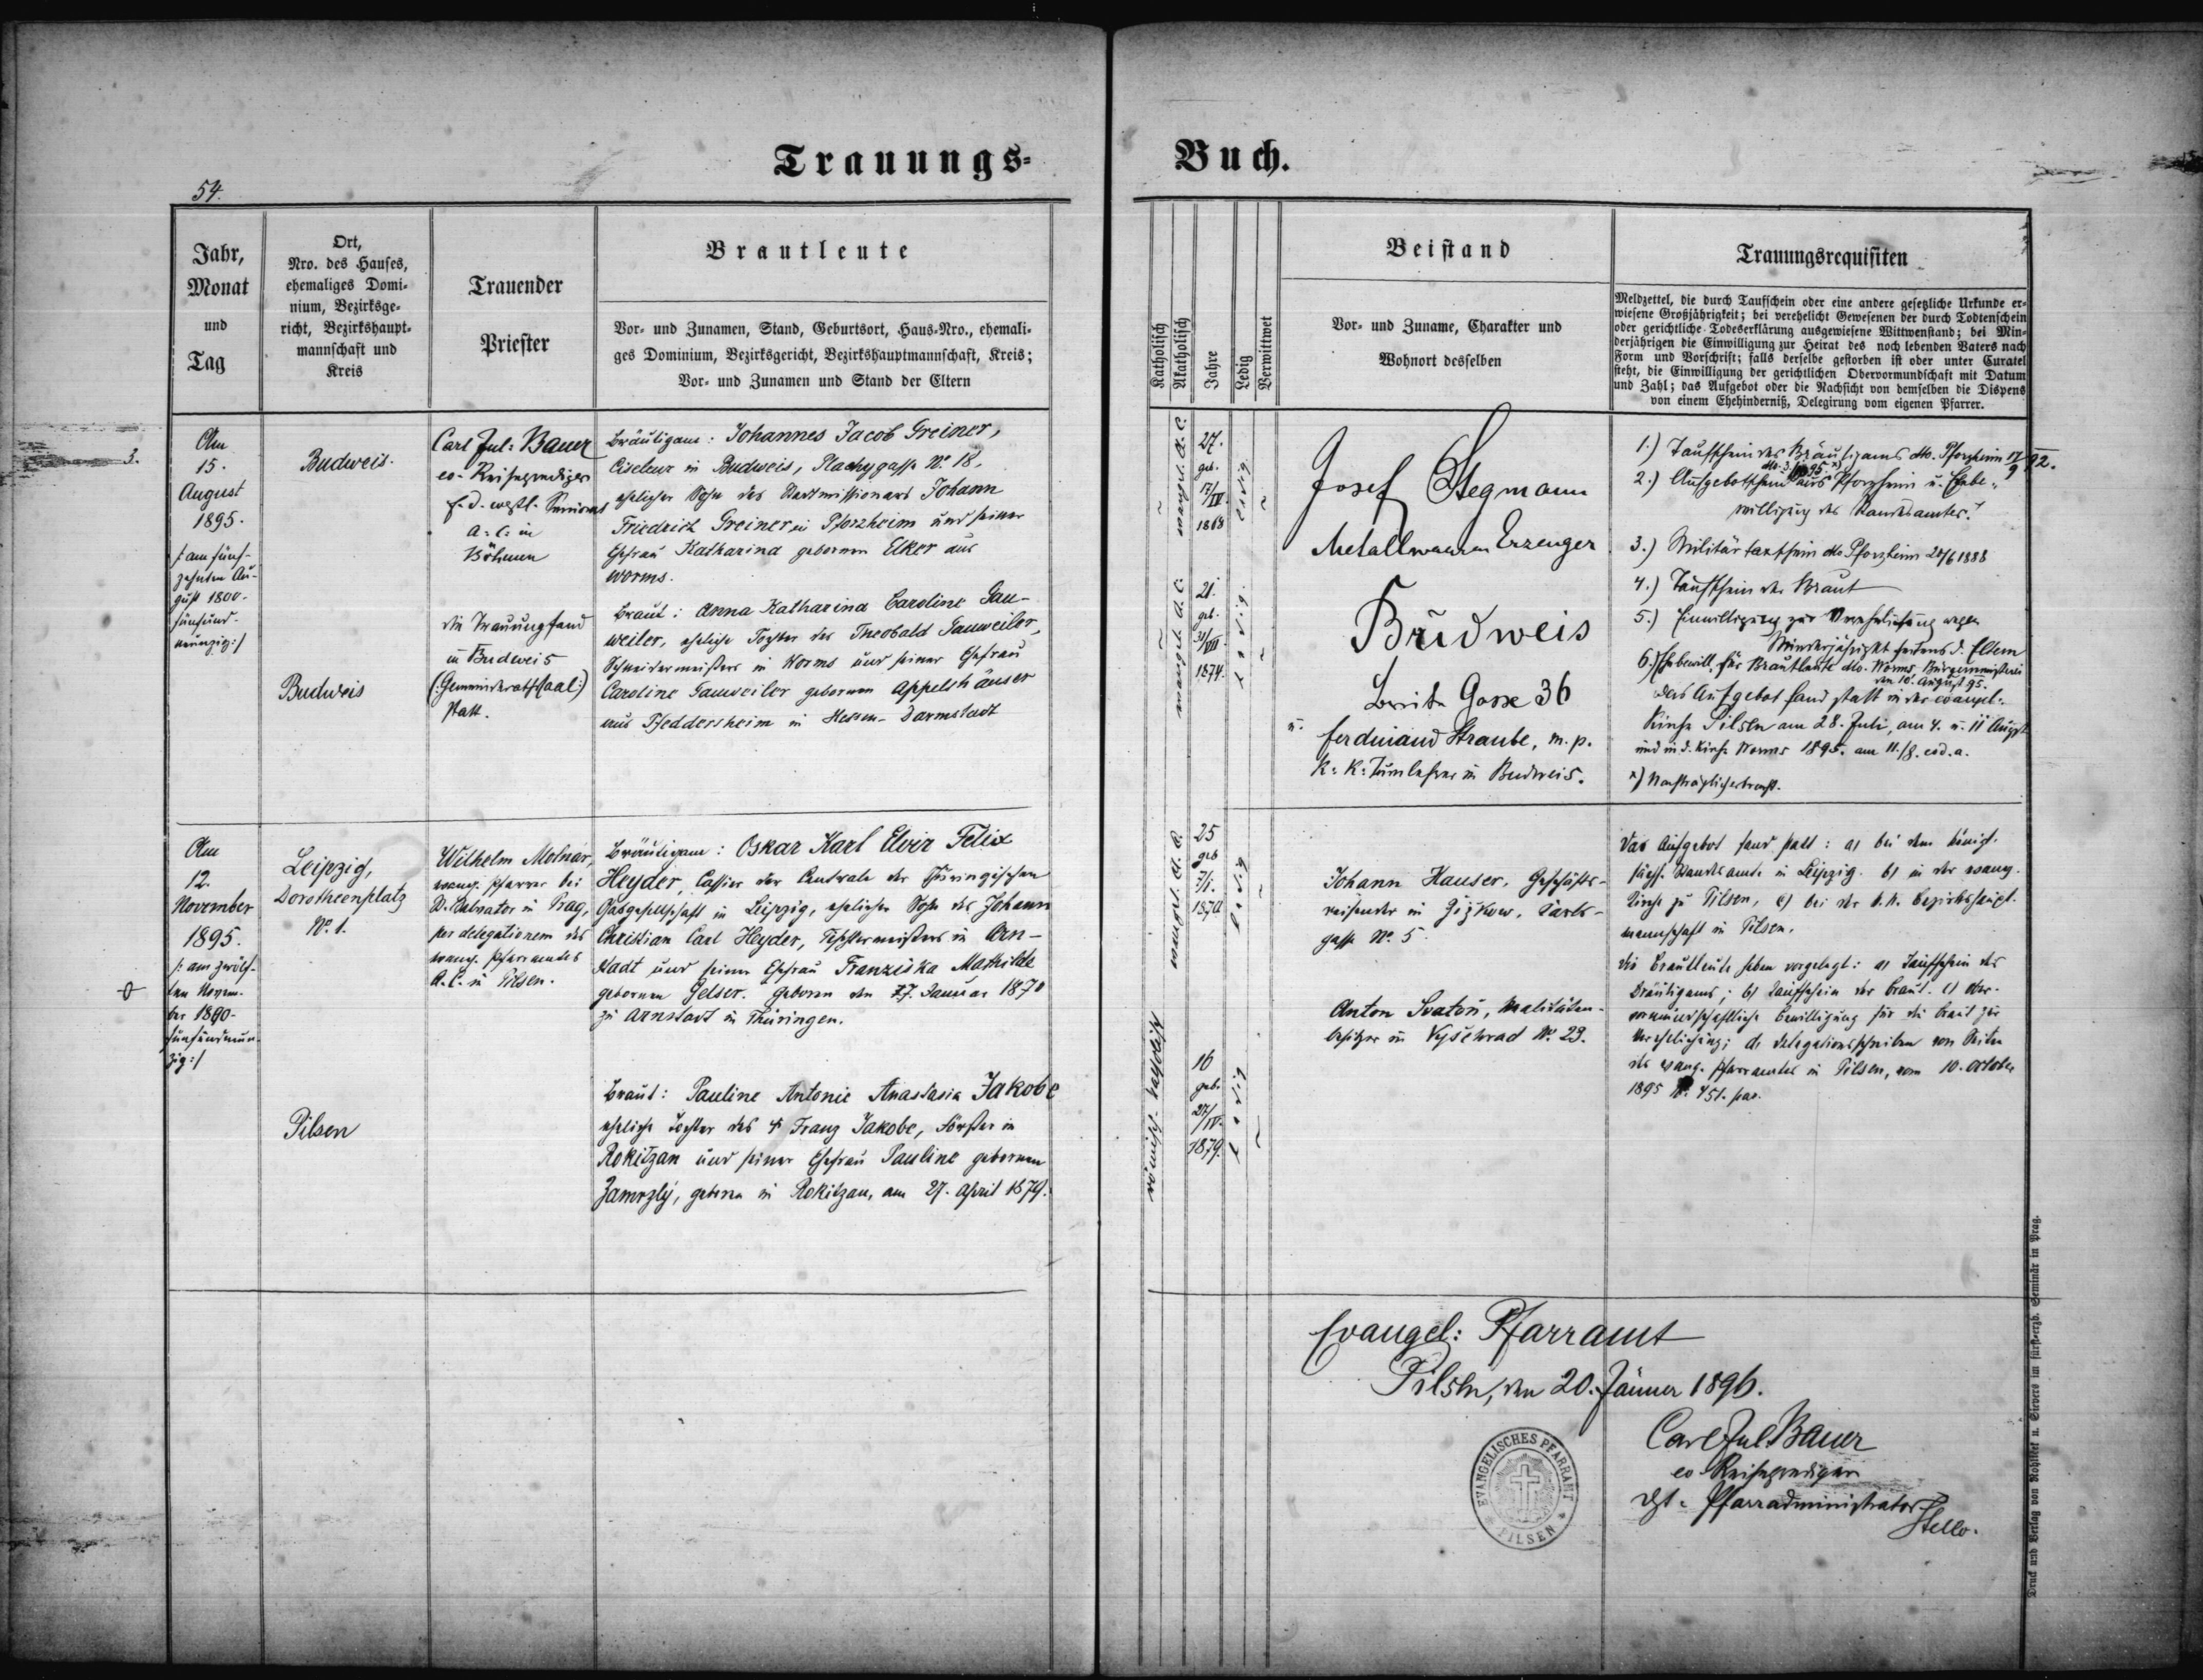 54.
Trauungs=
Buch.
Jahr,
Monat
und
Tag
Ort,
Nro. des Hauses,
ehemaliges Domi-
nium, Bezirksge-
richt, Bezirkshaupt-
mannschaft und
Kreis
Trauender
Priester
Brautleute
Vor- und Zunamen, Stand, Geburtsort, Haus-Nro., ehemali-
ges Dominium, Bezirksgericht, Bezirkshauptmannschaft, Kreis;
Vor- und Zunamen und Stand der Eltern
Katholisch
Akatholisch
Jahre
Ledig
Verwittwet
Beistand
Vor- und Zuname, Charakter und
Wohnort desselben
Trauungsrequisiten
Meldzettel, die durch Taufschein oder eine andere gesetzliche Urkunde er-
wiesene Großjährigkeit; bei verehelicht Gewesenen der durch Todtenschein
oder gerichtliche Todeserklärung ausgewiesene Wittwenstand; bei Min-
derjährigen die Einwilligung zur Heirat des noch lebenden Vaters nach
Form und Vorschrift; falls derselbe gestorben ist oder unter Curatel
steht, die Einwilligung der gerichtlichen Obervormundschaft mit Datum
und Zahl; das Aufgebot oder die Nachsicht von demselben die Dispens
von einem Ehehinderniß, Delegirung vom eigenen Pfarrer.
3.
Am
15.
August
1895.
/: am fünf-
zehnten Au-
gust 1800-
fünfund-
neunzig :/
Budweis.
Budweis
Carl Jul: Bauer
ev. Reiseprediger
f. d. westl. Seniorat
A: C: in
Böhmen
die Trauung fand
in Budweis
(: Gemeinderathssaal :)
statt.
Bräutigam: Johannes Jacob Greiner,
Ciseleur in Budweis, Plachygasse No. 18,
ehelicher Sohn des Stadtmissionars Johann
Friedrich Greiner in Pforzheim und seiner
Ehefrau Katharina gebornen Elker aus
Worms.
Braut: Anna Katharina Caroline Gau-
weiler, eheliche Tochter des Theobald Gauweiler,
Schneidermeisters in Worms und seiner Ehefrau
Caroline Gauweiler gebornen Appelshäuser
aus Pfeddersheim in Hessen-Darmstadt
evangel. A. C.
27.
geb.
17/IV
1868
ledig
evangel. A. C.
21.
geb.
31/VII
1874.
ledig.
Josef Stegmann
Metallwaaren Erzeuger
Budweis
Breite Gasse 36
u. Ferdinand Straube, m. p.
k: k: Turnlehrer in Budweis.
1.) Taufschein des Bräutigams dto. Pforzheim 17/9 92.
2.) Aufgebotschein aus Pforzheim u. Ehebe-
willigung des Standesamtes.
3.) Militärtaxschein dto Pforzheim 20/6 1888
4.) Taufschein der Braut
5.) Einwilligung zur Verehelichung wegen
Minderjährigkt seitens d. Eltern
6.) Ehebewill. für Brautleute dto. Worms, Bürgermeisterei
den 10. August 95.
Das Aufgebot fand statt in der evangel:
Kirche Pilsen am 28. Juli, am 4. u. 11 August
und in d. Kirche Worms 1895. am 11./8. eod. a.
x) Nachträglich erbracht.
Am
12.
November
1895.
/: am zwölf-
ten Novem-
ber 1890-
fünfundneun-
zig :/
Leipzig,
Dorotheenplatz
No. 1.
Pilsen
Wilhelm Molnar,
evang. Pfarrer bei
St. Salvator in Prag,
per delegationem des
evang. Pfarramtes
A. C. in Pilsen.
Bräutigam: Oskar Karl Elvir Felix
Heyder, Cassier der Centrale der Thüringischen
Gasgesellschaft in Leipzig, ehelicher Sohn des Johann
Christian Carl Heyder, Tischlermeisters in Arn-
stadt und seiner Ehefrau Franziska Mathilde
gebornen Gelser. Geboren den 7. Januar 1870
zu Arnstadt in Thüringen.
Braut: Pauline Antonie Anastasia Jakobe
eheliche Tochter des Franz Jakobe, Förster in
Rokitzan und seiner Ehefrau Pauline gebornen
Zamrzly, geboren in Rokitzan, am 27. April 1879.
evangel. A. C.
25
geb
7/1.
1870
ledig
römisch-katholisch
16
geb.
27/IV.
1879.
ledig
Johann Hauser, Geschäfts-
reisender in Zizkow, Karls-
gasse No. 5.
Anton Svaton, Realitäten-
besitzer in Vyšehrad No. 23.
Das Aufgebot fand statt: a) bei dem königl.
sächs. Standesamte in Leipzig. b) in der evang.
Kirche zu Pilsen, c) bei der k. k. Bezirkshaupt-
mannschaft in Pilsen.
Die Brautleute haben vorgelegt: a) Taufschein des
Bräutigams; b) Taufschein der Braut. c) Ober-
vormundschaftliche Bewilligung für die Braut zur
Verehelichung; d) Delegationsschreiben von Seiten
des evang. Pfarramtes in Pilsen, vom 10. October
1895 451.
Evangel: Pfarramt
Pilsen, den 20. Jänner 1896.
EVANGELISCHES PFARRAMT
PILSEN
Carl Jul Bauer
ev Reiseprediger
dzt. Pfarradministrator
Stello.
Druck und Verlag von Rohliček u. Sievers im fürst-erzb. Seminär in Prag.